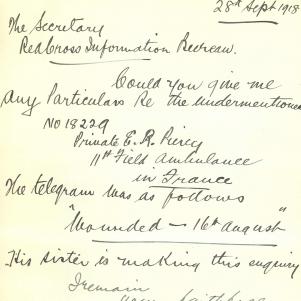 28th Sept 1918
The Secretary
Red Cross Information Bureau.
Could you give me
any Particulars Re the undermentioned
No 18229
Private E. R. Piercy
11th Field Ambulance
in France
The telegram was as follows
"Wounded - 16th August"
His sister is making this enquiry
I remain
yours faithfully